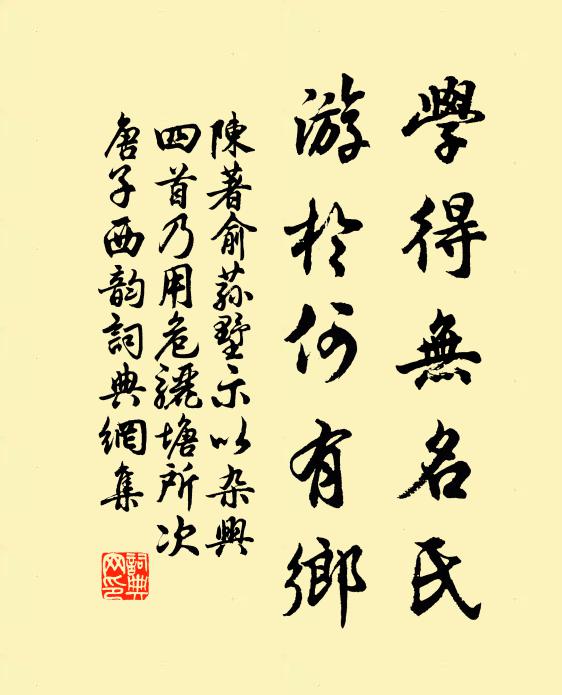 學得無名氏
游於何有鄉
陳著俞蒜墅示以杂興
四首乃用危驪塘所次
唐子西韵詞典網集
詞典网印